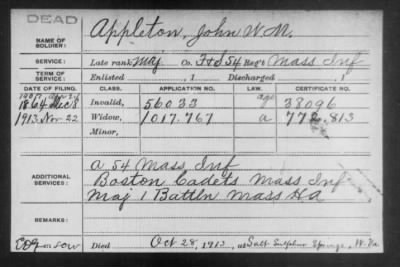 DEAD
NAME OF SOLDIER: Appleton, John W. M.
SERVICE: Late rank Maj Co. F&S 54 Reg't Mass Inf
TERM OF SERVICE: Enlisted , 1 Discharged , 1
DATE OF FILING. CLASS. APPLICATION NO. LAW. CERTIFICATE NO.
1907 Apr
1864 Dec 8 Invalid, 56033 age 38096
1913 Nov 22 Widow, 1017.767 a 772.813
Minor,
ADDITIONAL SERVICES: A 54 Mass Inf
Boston Cadets Mass Inf
Maj 1 Battln Mass H A
REMARKS:
Died Oct 28, 1913, at Salt Sulphur Springs, W. Va